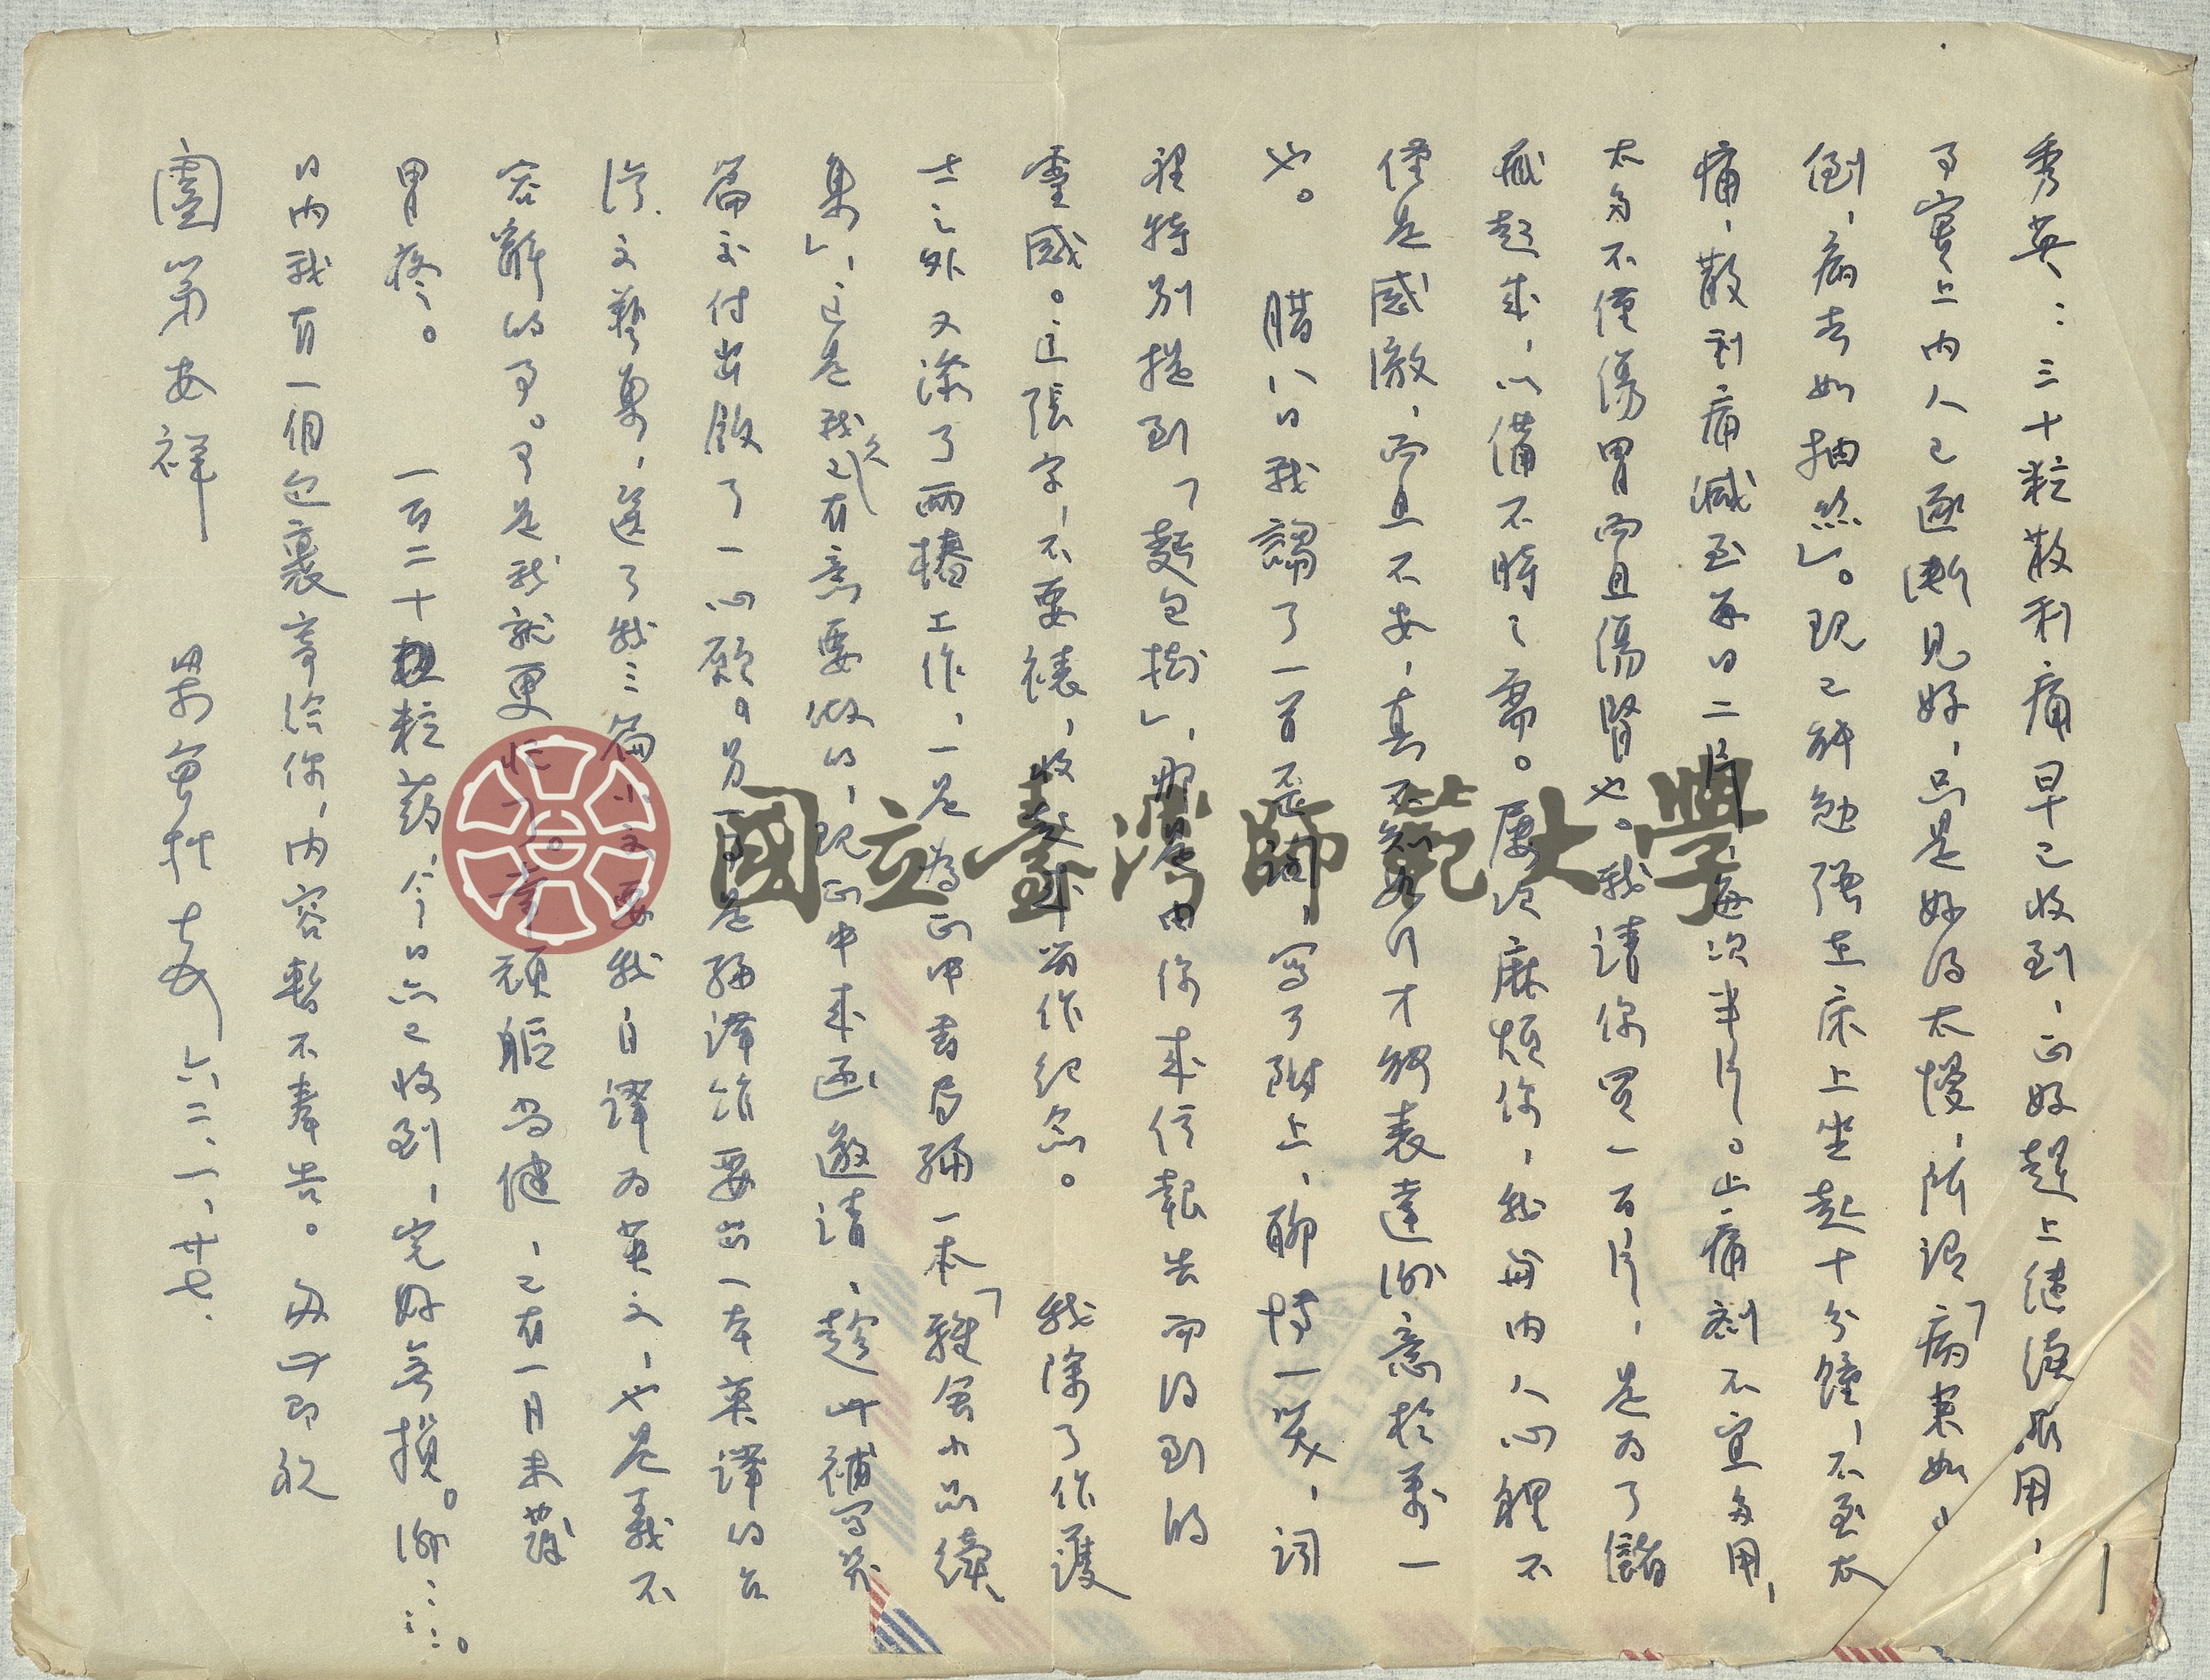 秀英：三十粒散利痛早已收到，正好趕上繼續服用，
事實上內人已逐漸見好，只是好得太慢，所謂「病來如山
倒，病去如抽絲」。現已能勉強在床上坐起十分鐘，不至太
痛，散利痛減至每日二次，每次半片。止痛劑不宜多用，
太多不僅傷胃而且傷腎也。我請你買一百片，是為了儲
藏起來，以備不時之需。屢次麻煩你，我與內人心裡不
僅是感激，而且不安，真不知如何才能表達謝意於萬一
也。　臘八日我謅了一首歪詞，寫了附上，聊博一笑，詞
裡特別提到「麵包樹」，那是由你來信報告而得到的
靈感。這張字，不要裱，收起來留作紀念。　我除了作護
士之外又添了兩樁工作，一是為正中書局編一本「雅舍小品續
集」，這是我久已有意要做的，現正中來函邀請，趁此補寫若
篇交付出版了一心願。另一事是編譯館要出一本英譯的台
灣文藝集，選了我三篇小文要我自譯為英文，也是義不
容辭的事。于是我就更忙了。幸頑軀尚健，已有一月未發
胃疼。　一百二十粒药，今日亦已收到，完好無損。謝……。
日內我有一個包裹寄給你，內容暫不奉告。匆此即祝
闔第安祥　　梁實秋　六二、一、廿七、
國立臺灣師範大學